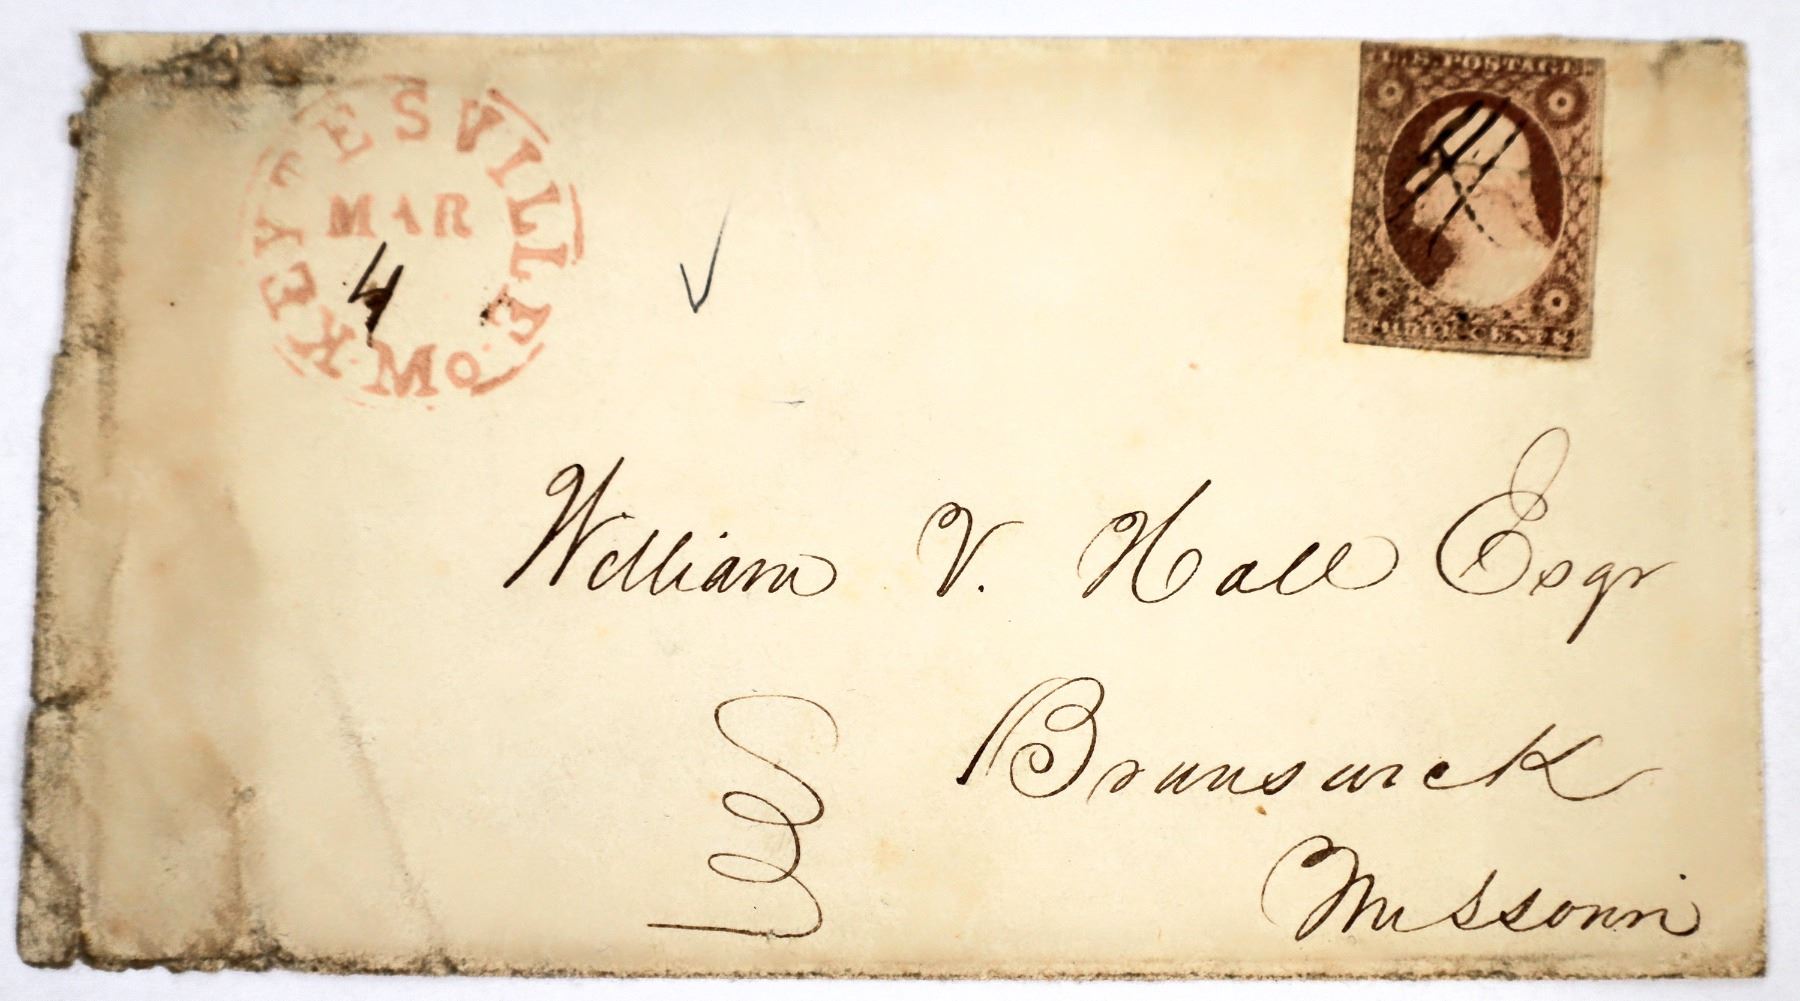 KEYTESVILLE
MAR
4
Mo.
U.S. POSTAGE
THREE CENTS
William V. Hall Esqr
Brunswick
Missouri